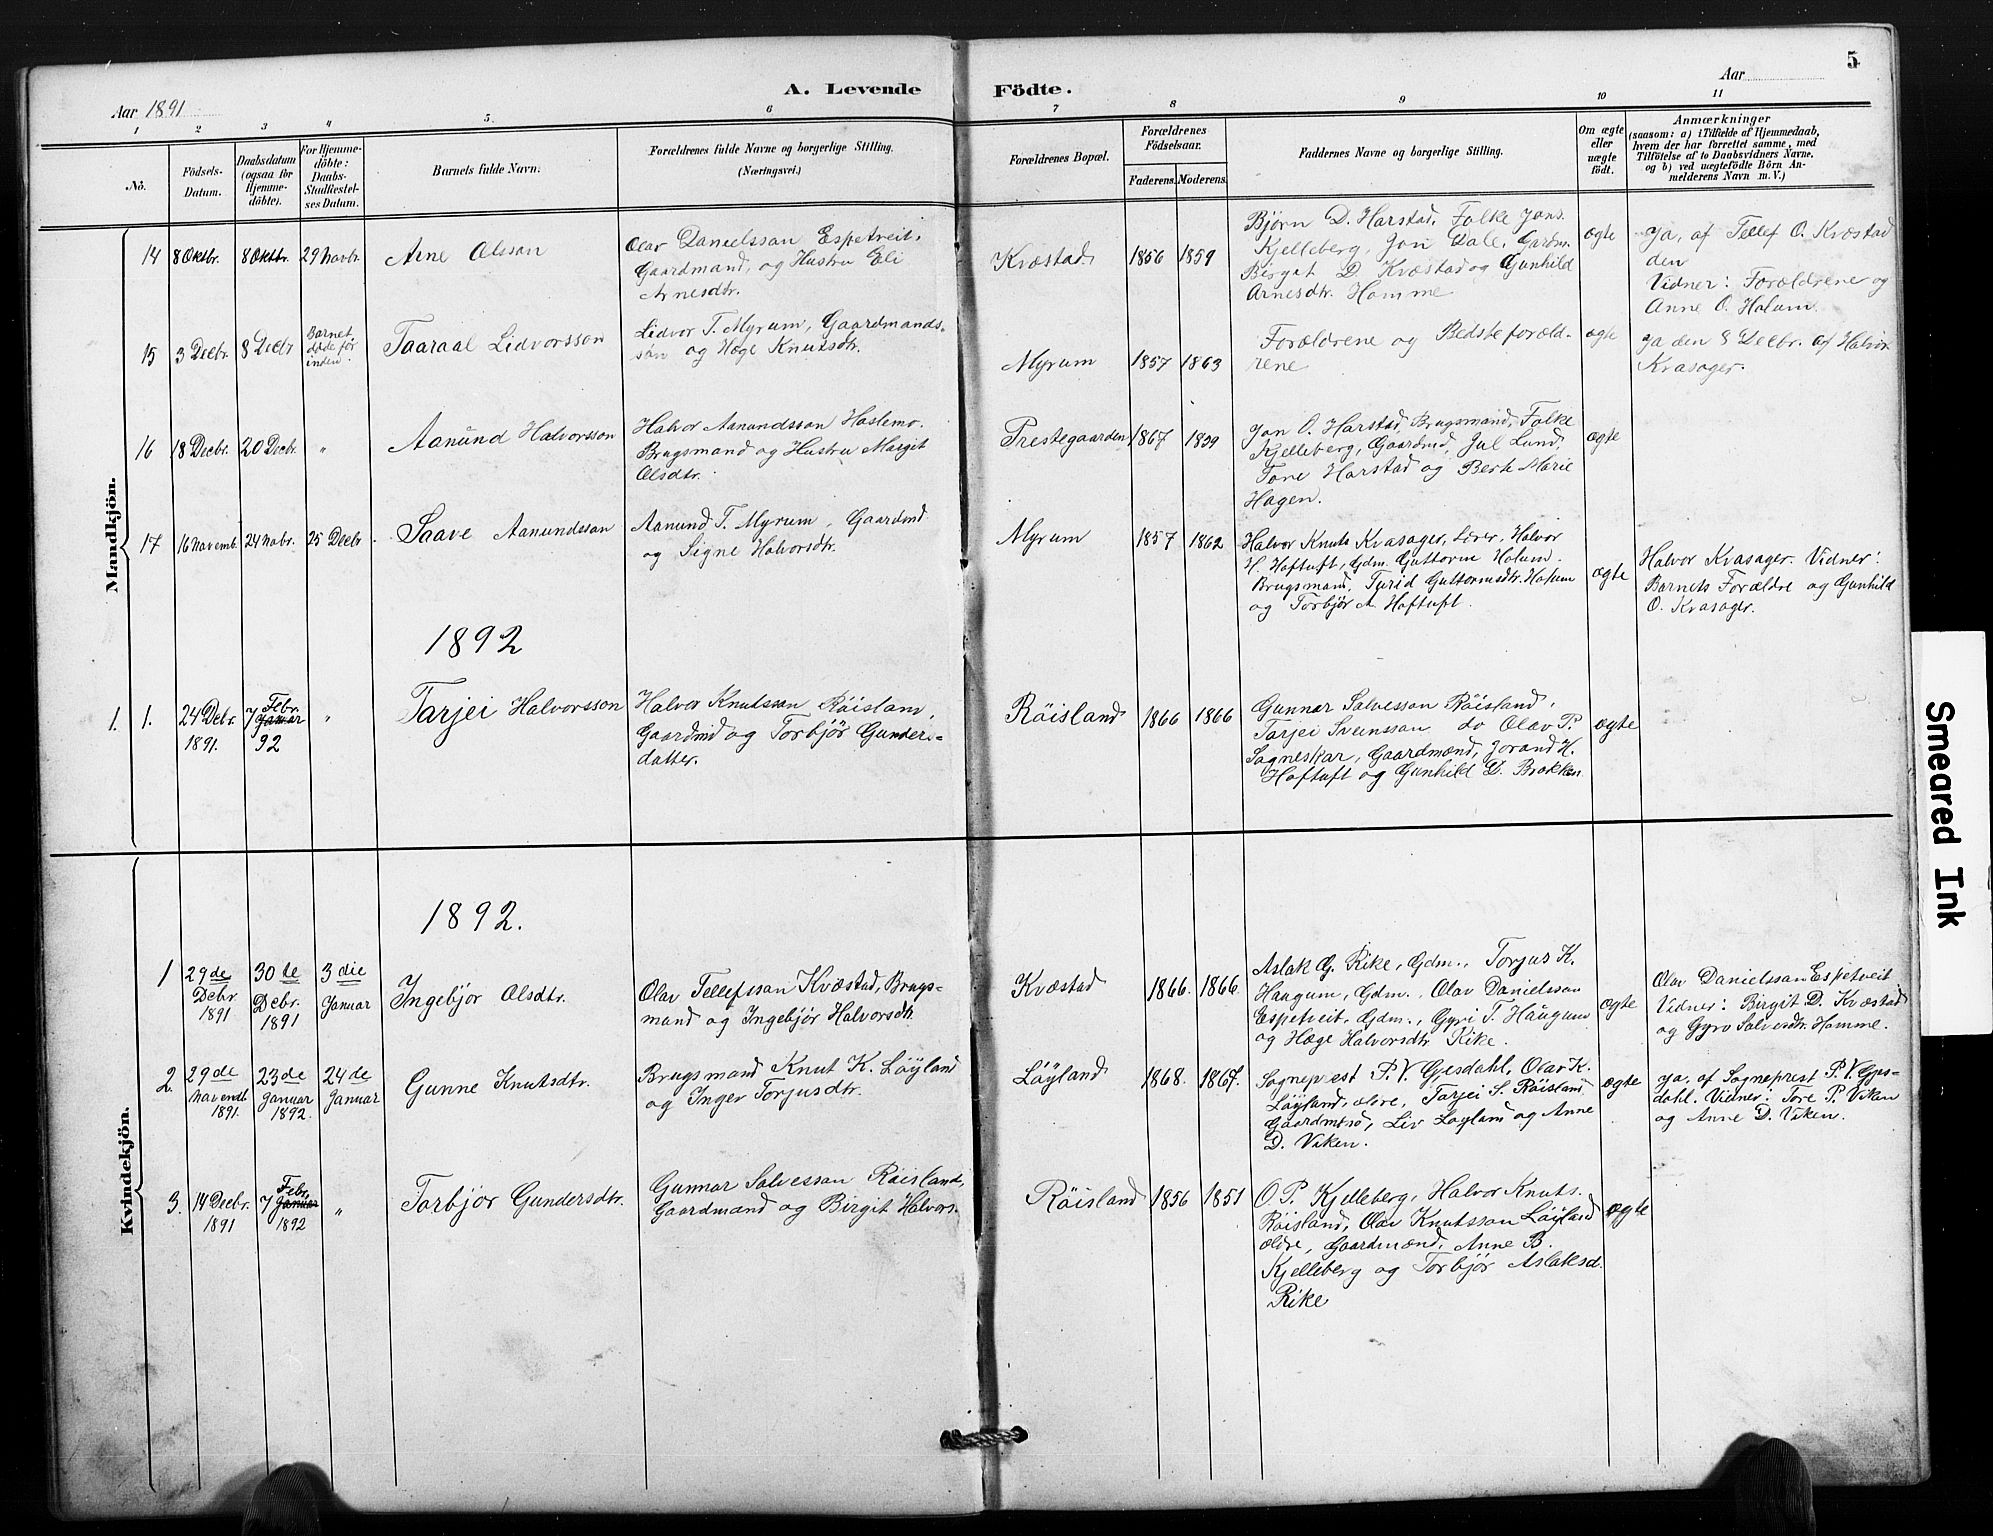 5
Aar 1891
A. Levende Födte.
Aar
1 2 3 4 5. 6 7 8 9 10 11
No.
Födsels-
Datum.
Daabsdatum
(ogsaa for
Hjemme-
döbte).
For Hjemme-
döbte:
Daabs-
Stadfæstel-
ses Datum.
Barnets fulde Navn.
Forældrenes fulde Navne og borgerlige Stilling.
(Næringsvei.)
Forældrenes Bopæl.
Forældrenes
Födselsaar.
Faderens. Moderens.
Faddernes Navne og borgerlige Stilling.
Om ægte
eller
uægte
födt.
Anmærkninger
(saasom: a) i Tilfælde af Hjemmedaab,
hvem der har forrettet samme, med
Tilföielse af to Daabsvidners Navne,
og b) ved uægtefödte Börn An-
melderens Navn m. V.)
Mandkjön.
14
8 Oktbr.
8 Oktbr.
29 Novbr.
Arne Olsson
Olav Danielsson Espetveit,
Gaardmand, og Hustru Eli
Arnesdtr.
Kvæstad
1856
1859
Bjørn D. Harstad, Folke Jons.
Kjelleberg, Jon Dale, Gardm.
Birgit D. Kvæstad og Gunhild
Arnesdtr. Homme
ægte
ja, af Tellef O. Kvæstad
den
Vidner: Forældrene og
Anne O. Holum
15
3 Decbr.
8 Decbr
Barnet
døde for
inden.
Taaraal Lidvorsson
Lidvor T. Myrum, Gaardmands-
søn og Hæge Knutsdtr.
Myrum
1857
1863
Forældrene og Bedsteforæld-
rene
ægte
ja den 8 Decbr. af Halvor
Kvasager.
16
18 Decbr.
20 Decbr.
"
Aanund Halvorsson
Halvor Aanundsson Haslemo.
Brugsmand og Hustru Margit
Olsdtr.
Prestegaarden
1867
1859
Jon O. Harstad, Brugsmand, Folke
Kjelleberg, Gaardmd, Jul Lund,
Tone Harstad og Berte Marie
Hagen.
ægte
17
16 Novemb.
24 Nobr.
25 Decbr.
Saave Aanundsson
Aanund T. Myrum, Gaardmd
og Signe Halvorsdtr.
Myrum
1857
1862
Halvor Knuts Kvasager, Lærer, Halvor
H. Hoftuft, Gdm. Guttorm Holum.
Brugsmand, Turid Guttormsdtr. Holum
og Torbjør A. Hoftuft.
ægte
Halvor Kvasager. Vidner:
Barnets Forældre og Gunhild
O. Kvasager.
1892
1. 1.
24 Debr.
1891.
Febr.
7 Januar
92
"
Tarjei Halvorsson
Halvor Knutsson Røisland,
Gaardmd og Torbjør Gunders-
datter.
Røisland
1866
1866
Gunnar Salvesson Røisland,
Tarjei Sveinsson do Olav P.
Sogneskar, Gaardmænd, Jorand H.
Hoftuft og Gunhild D. Brokken.
ægte
Kvindekjön.
1892.
1
29de
Debr.
1891
30te
Debr.
1891
3die
Januar
Ingebjor Olsdtr.
Olav Tellefsson Kvæstad, Brugs-
mand og Ingebjör Halvorsdtr.
Kvæstad
1866.
1866.
Aslak G. Rike, Gdm., Torjus K.
Haugum, Gdm., Olav Danielsson
Espetveit, Gdm., Gyri T. Haugum
og Hæge Halvorsdtr Rike.
ægte
Olav Danielsson Espetveit
Vidner: Birgit D. Kvæstad
og Gyro Salvesdtr. Homme.
2.
29de
Novembr
1891.
23de
Januar
1892.
24de
Januar
Gunne Knutsdtr.
Brugsmand Knut K. Løyland
og Ingev Torjusdtr.
Løyland
1868.
1867.
Sogneprest P. V. Gjesdahl, Olav K.
Løyland, eldre, Tarjei S. Røisland,
Gaardmænd, Liv Løyland og Anne
D. Viken.
ægte
ja. af Sogneprest P. V. Gjes-
dahl. Vidner: Tore P. Viken
og Anne D. Viken.
3.
14 Decbr.
1891
Febr.
7 Januar
1892
"
Torbjör Gundersdtr.
Gunnar Salvesson Røisland,
Gaardmand og Birgit Halvors.
Røisland
1856
1851
O P. Kjelleberg, Halvor Knuts.
Røisland, Olav Knutsson Løyland
ældre, Gaardmænd, Anne B.
Kjelleberg og Torbjör Aslaksd.
Rike
ægte
Smeared Ink